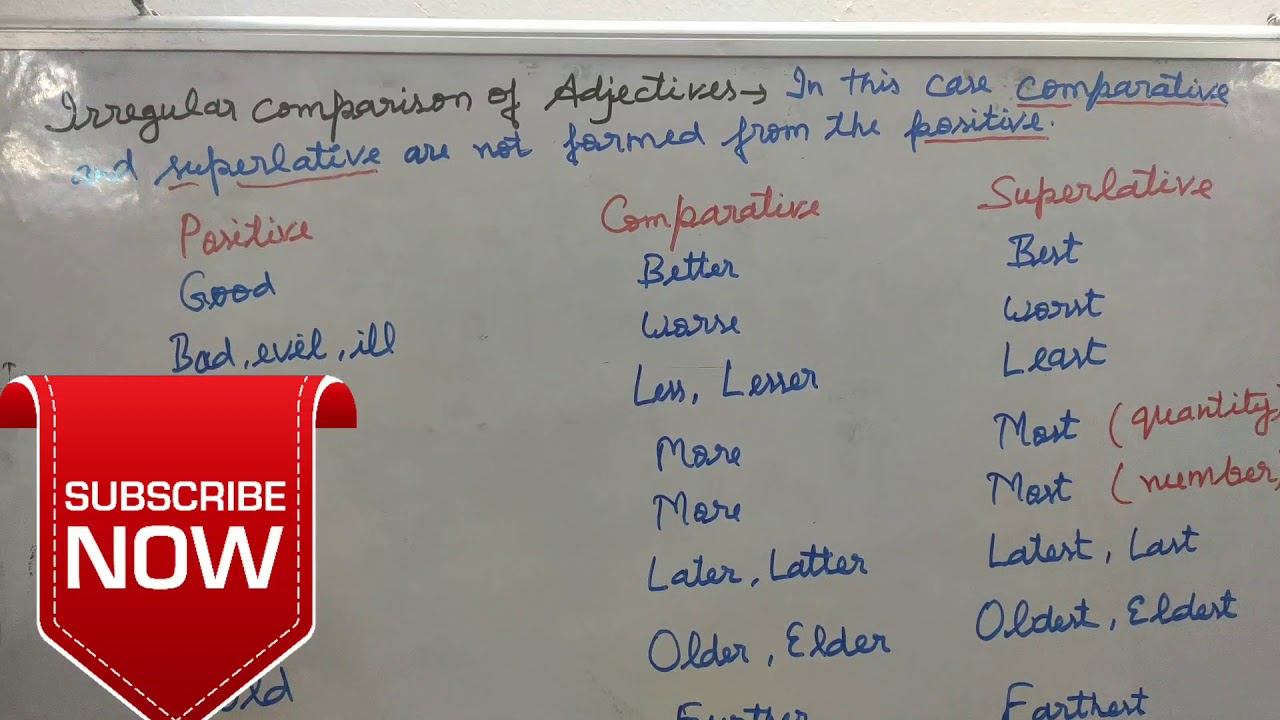 Irregular comparison of Adjectives→ In this case comparative
and superlative are not formed from the positive.
Positive Comparative Superlative
Good Better Best
Bad, evil, ill Worse Worst
Less, Lesser Least
More Most (quantity)
More Most (number)
Later, Latter Latest, Last
Older, Elder Oldest, Eldest
Further Farthest
SUBSCRIBE
NOW